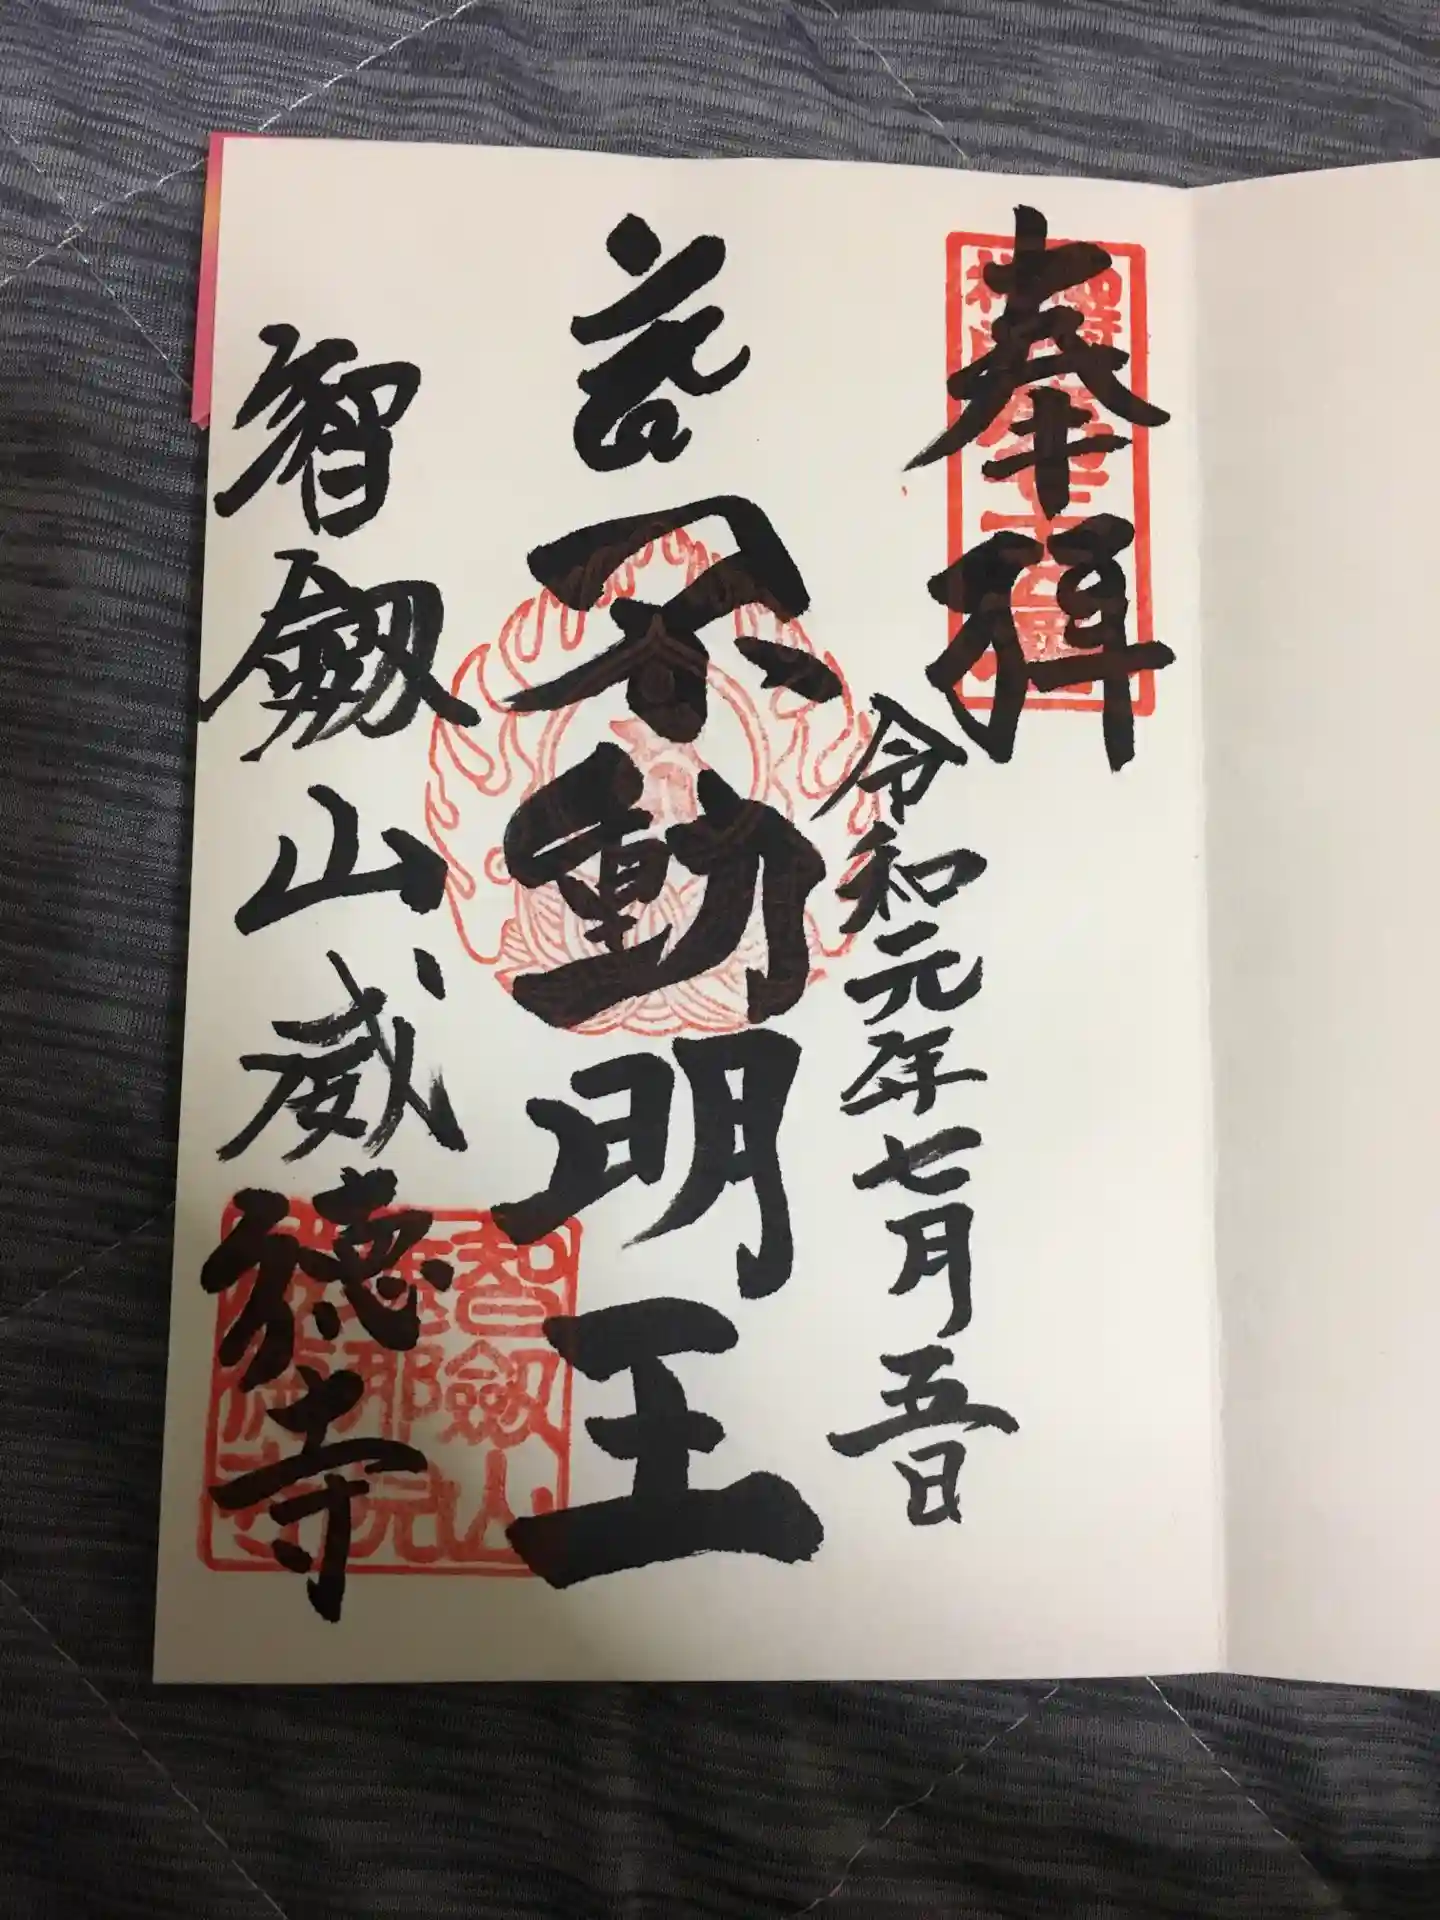 奉拜
令和元年七月五日
不動明王
智劔山威徳寺
智劔山